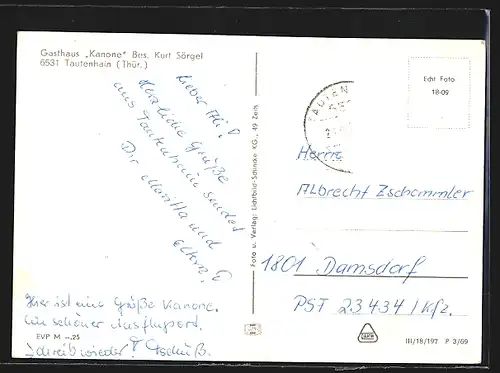 Gasthaus „Kanone" Bes. Kurt Sörgel
6531 Tautenhain (Thür.)
Lieber
Herzliche Grüße
aus Tautenhain sendet
Dir Maritta und
Eltern.
Hier ist eine Größe Kanone.
Ein schöner Ausflugsort.
Schreib wieder! Tschüß.
EVP M –.25
Foto u. Verlag: Lichtbild-Schincke KG., 49 Zeitz
Echt Foto
18-09
TAUTEN
Herrn
Albrecht Zschammler
1801 Damsdorf
PST 23434/Kfz.
III/18/197 P 3/69